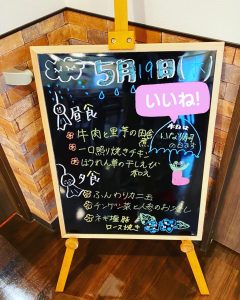 5月19日(木)
いいね!
昼食
牛肉と里芋の田舎煮
一口照り焼きチキン
ほうれん草の干しえび和え
夕食
ふんわりカニ玉
チンゲン菜と人参のおひたし
ネギ塩豚ロース焼き